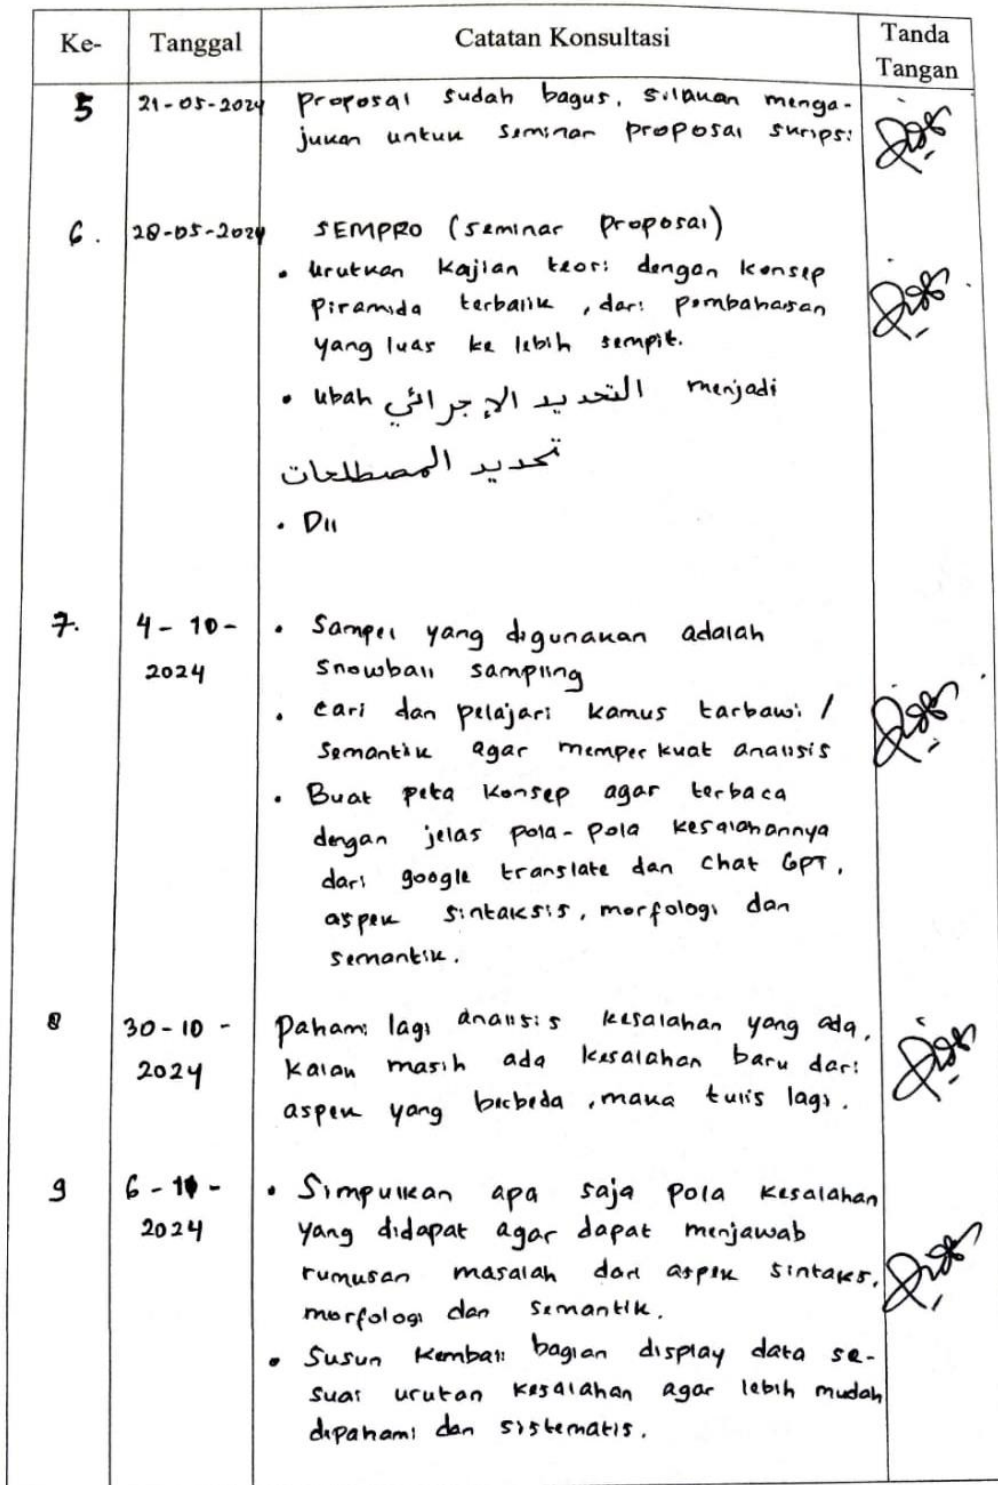 Ke- Tanggal Catatan Konsultasi Tanda Tangan
5 21-05-2024 Proposal sudah bagus, silakan menga-
jukan untuk seminar proposal skripsi
6. 28-05-2024 SEMPRO (seminar proposal)
• Urutkan kajian teori dengan konsep
piramida terbalik, dari pembahasan
yang luas ke lebih sempit.
• Ubah التحديد الإجرائي menjadi
تحديد المصطلحات
• Dll
7. 4-10- • Sampel yang digunakan adalah
2024 snowball sampling
• Cari dan pelajari kamus tarbawi /
semantik agar memperkuat analisis
• Buat peta konsep agar terbaca
dengan jelas pola-pola kesalahannya
dari google translate dan Chat GPT,
aspek sintaksis, morfologi dan
semantik.
8 30-10- Pahami lagi analisis kesalahan yang ada,
2024 kalau masih ada kesalahan baru dari
aspek yang berbeda, maka tulis lagi.
9 6-11- • Simpulkan apa saja pola kesalahan
2024 yang didapat agar dapat menjawab
rumusan masalah dari aspek sintaks,
morfologi dan semantik.
• Susun kembali bagian display data se-
suai urutan kesalahan agar lebih mudah
dipahami dan sistematis.